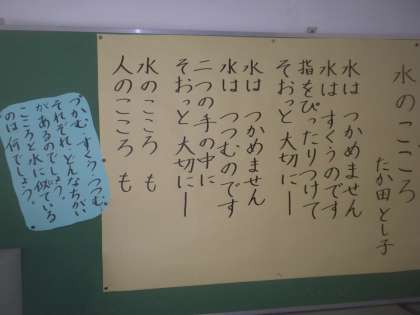 水のこころ
たか田とし子
水は つかめません
水は すくうのです
指をぴったりつけて
そおっと 大切に――
水は つかめません
水は つつむのです
二つの手の中に
そおっと 大切に――
水のこころ も
人のこころ も
つかむ、すくう、つつむ、
それぞれ、どんなちがい
があるのでしょう。
こころと水に似ている
のは何でしょう。